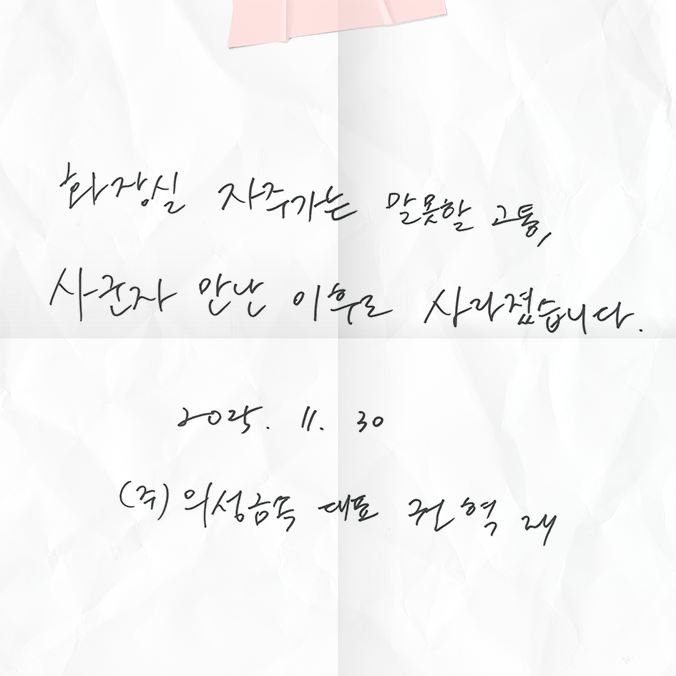 화장실 자주가는 말못할 고통,
사군자 만난 이후로 사라졌습니다.
2025. 11. 30
(주) 의성금속 대표 권혁재